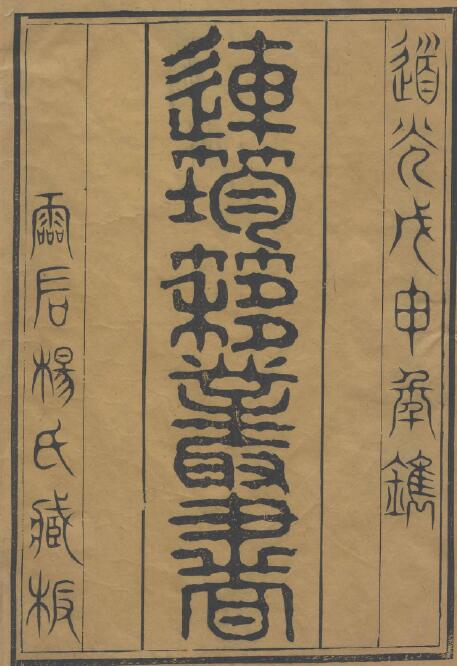 道光戊申年鐫
連筠簃叢書
靈石楊氏藏板